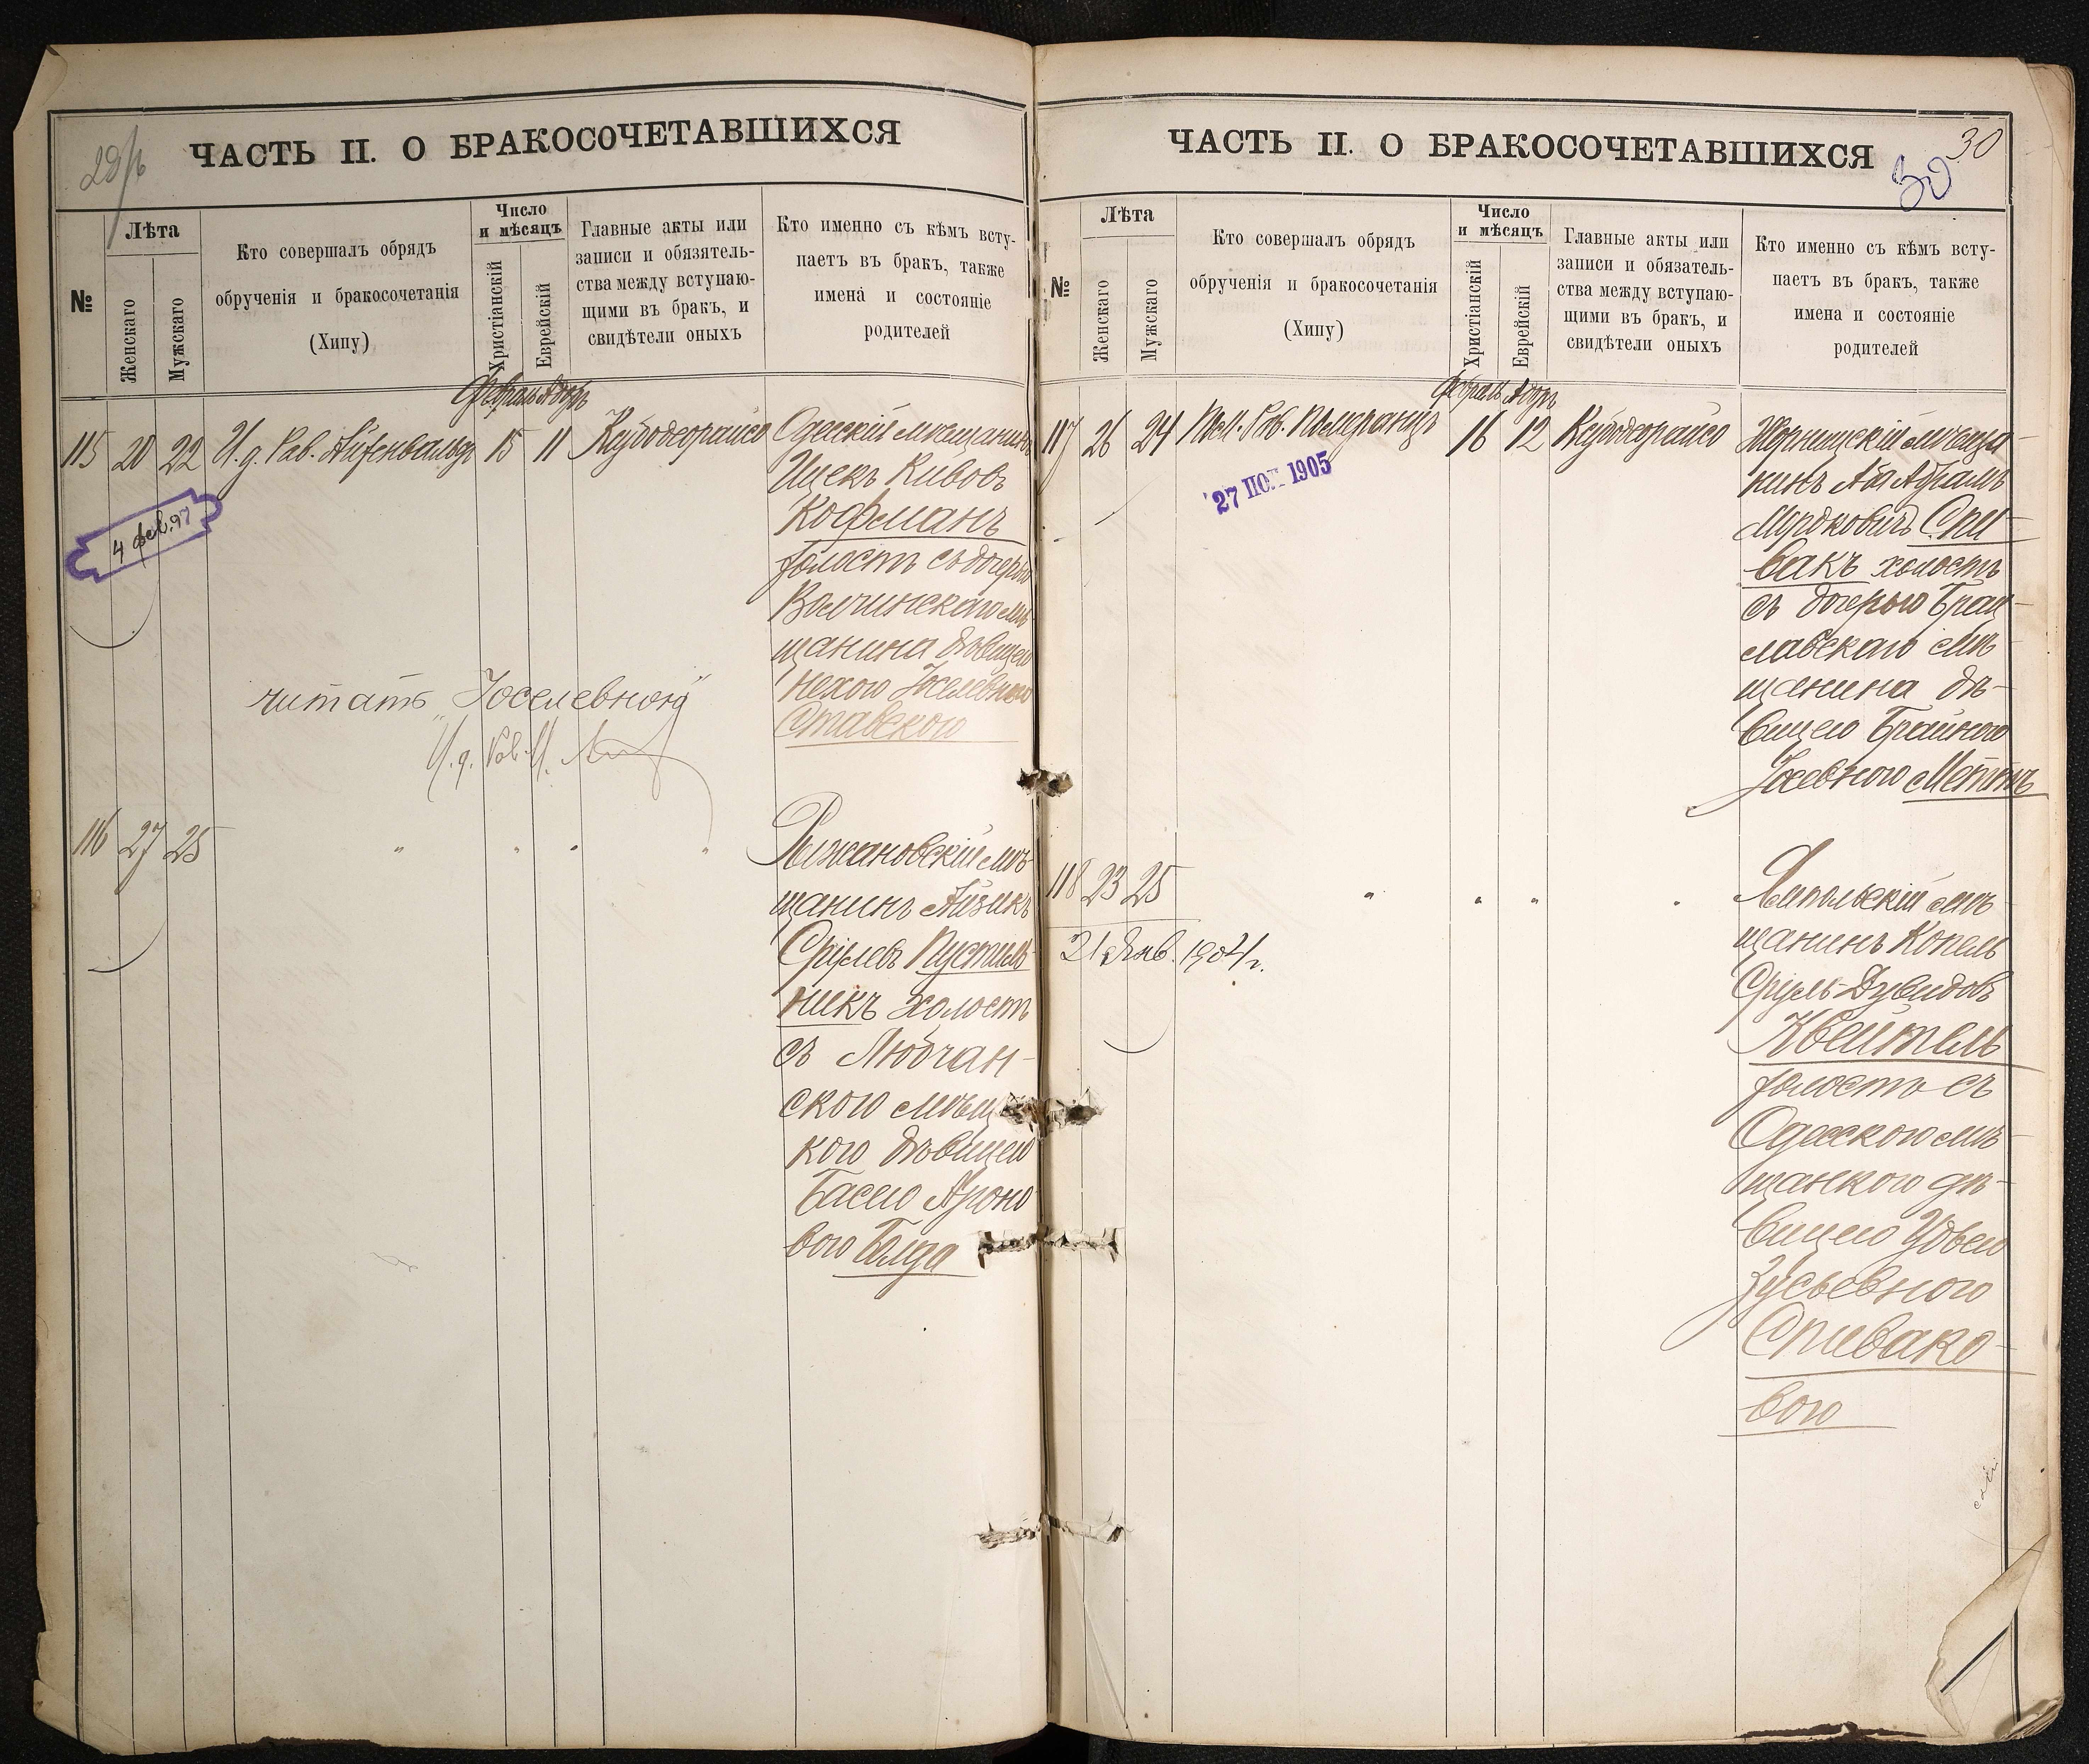 29/б
ЧАСТЬ II. О БРАКОСОЧЕТАВШИХСЯ
№
Лѣта
Женскаго
Мужскаго
Кто совершалъ обрядъ
обрученія и бракосочетанія
(Хипу)
Число
и мѣсяцъ
Христіанскій
Еврейскій
Главные акты или
записи и обязатель-
ства между вступаю-
щими въ бракъ, и
свидѣтели оныхъ
Кто именно съ кѣмъ всту-
паетъ въ брак, также
имена и состояніе
родителей
Февраль Адоръ
115 20 22 И. д. Рав. Айзенвальдъ 15 11
Одесскій мѣщанинъ
Ицекъ Кивовъ
Кофманъ
холостъ съ дочерью
мѣ-
щанина дѣвицею
Нехою Іоселевною
Ставскою
4 фев. 97
читать „Іоселевною"
И. д. Рав.
116 27 25 " " " "
Рыжановскій мѣ-
щанинъ Айзикъ
Срулевъ Пустиль-
никъ холостъ
съ
скою
кою дѣвицею
Басею Ароно-
вою Балда
ЧАСТЬ II. О БРАКОСОЧЕТАВШИХСЯ
30
30
№
Лѣта
Женскаго
Мужскаго
Кто совершалъ обрядъ
обрученія и бракосочетанія
(Хипу)
Число
и мѣсяцъ
Христіанскій
Еврейскій
Главные акты или
записи и обязатель-
ства между вступаю-
щими въ бракъ, и
свидѣтели оныхъ
Кто именно съ кѣмъ всту-
паетъ въ бракъ, также
имена и состояніе
родителей
Февраль Адоръ
117 26 24 Пом. Рав. Померанцъ 16 12
Жорнищскій мѣща-
нинъ Аба Абрамъ
Мордковичъ Спи-
вакъ холостъ
съ дочерью Брац-
лавскаго мѣ-
щанина дѣ-
вицею Брайною
27 1905
118 23 25 " " " "
Липольскій мѣ-
щанинъ Копель
Сруль-Дувидовъ
Квейтель
холостъ съ
Одесскою мѣ-
щанкою дѣ-
вицею
Зусьевною
Спивако-
вою
21 Янв. 1904 г.